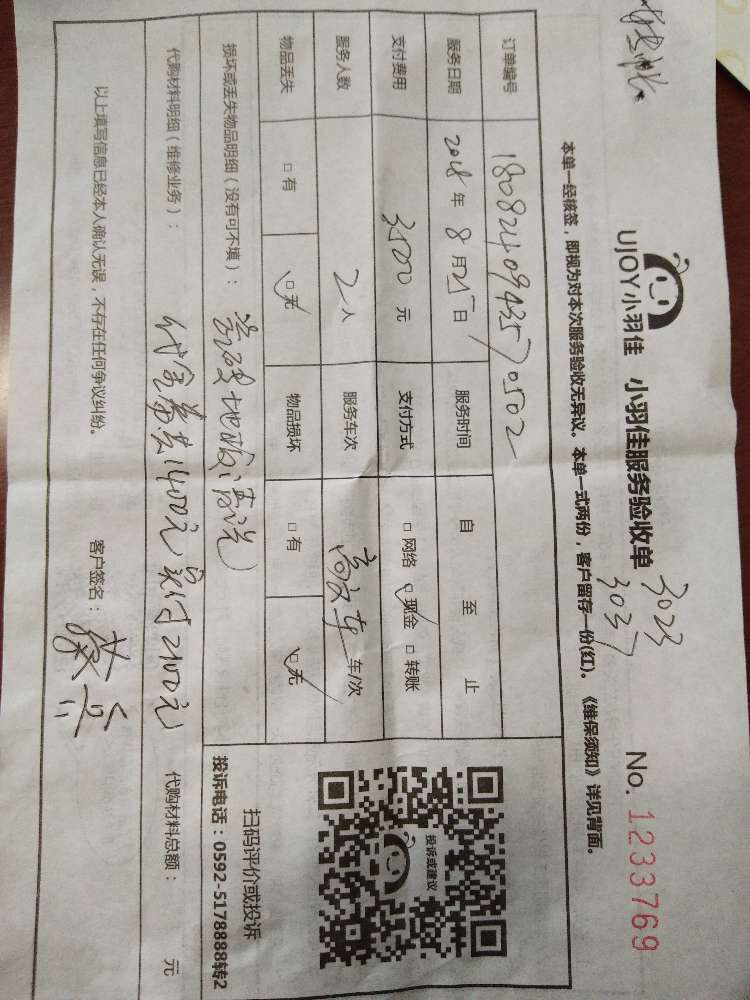 UJOY小羽佳 小羽佳服务验收单 No. 1233769
3023
3037
本单一经核签，即视为对本次服务验收无异议。本单一式两份，客户留存一份(红)。《维保须知》详见背面。
订单编号 1808240943570502
服务日期 2018年8月25日 服务时间 自 至 止
支付费用 3500元 支付方式 □网络 ☑现金 □转账
服务人数 2人 服务车次 车/次
物品丢失 □有 ☑无 物品损坏 □有 ☑无
损坏或丢失物品明细（没有可不填）： 地板清洗
代购材料明细（维修业务）： 代金券去1400元实付2100元 代购材料总额： 元
以上填写信息已经本人确认无误，不存在任何争议纠纷。 客户签名：
投诉或建议
扫码评价或投诉
投诉电话：0592-5178888转2